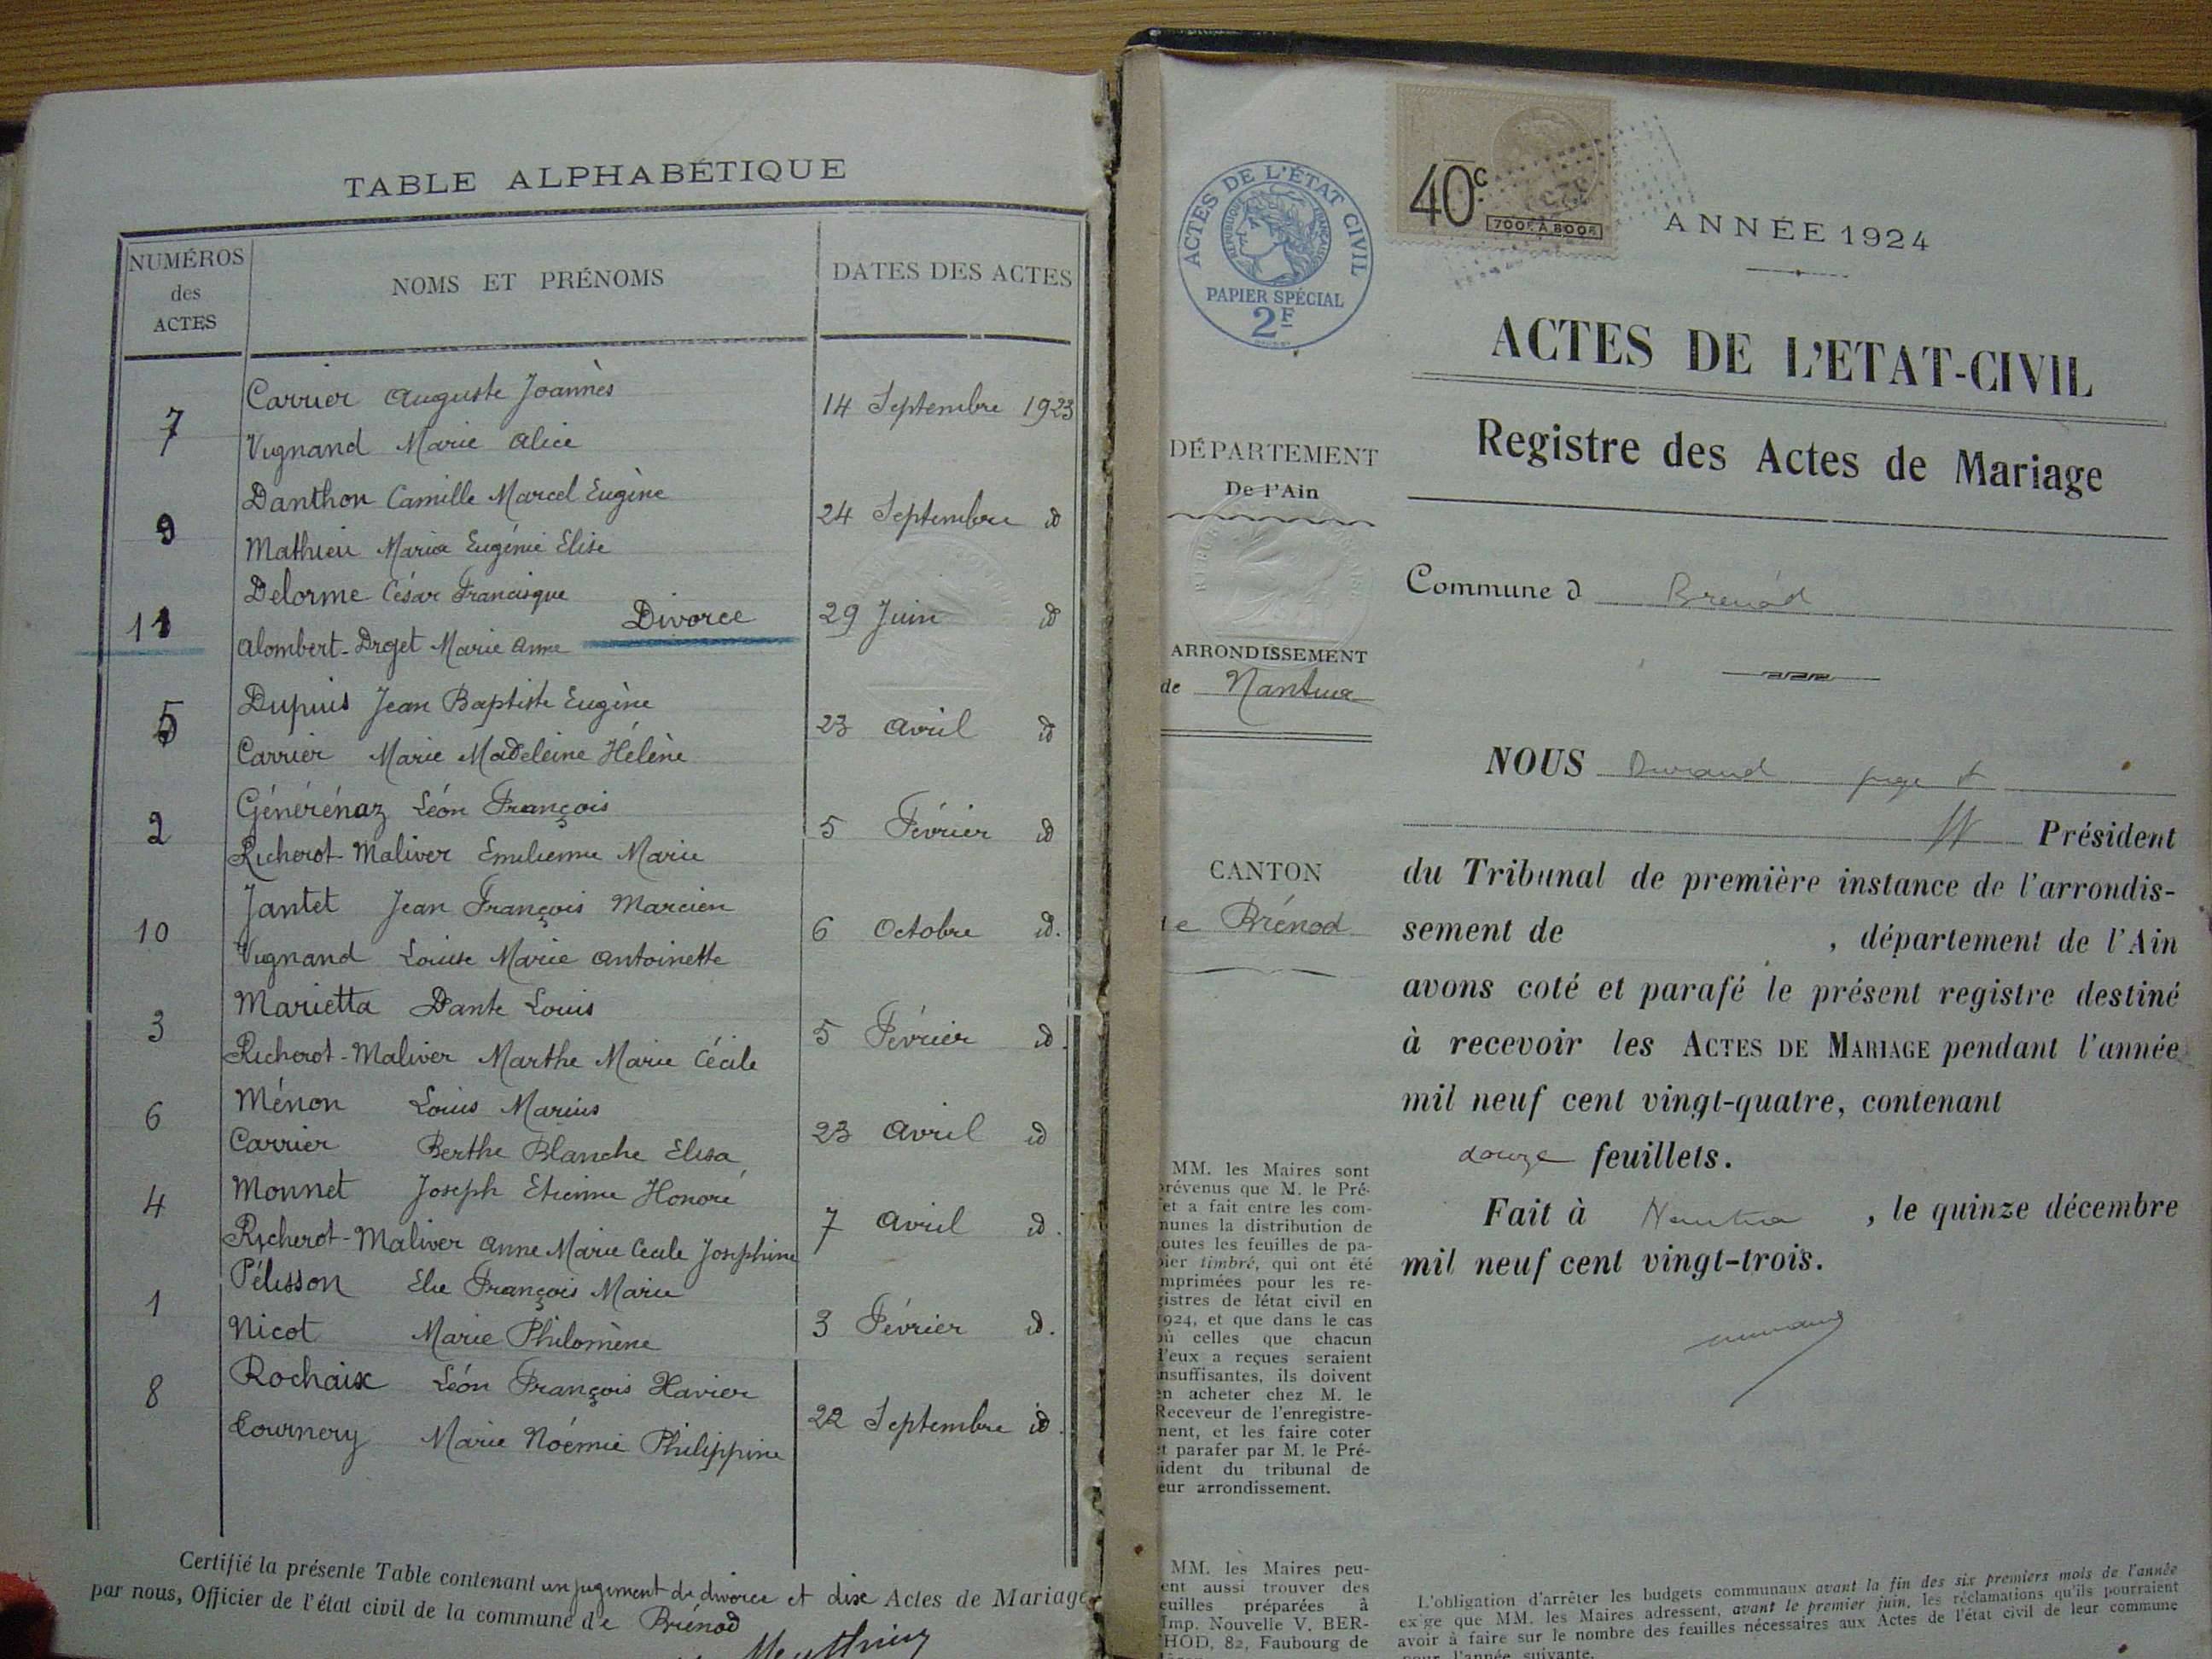 TABLE ALPHABÉTIQUE
NUMÉROS
des
ACTES
NOMS ET PRÉNOMS
DATES DES ACTES
Carrier Auguste Joannès
7 14 Septembre 1923
Vugnand Marie Alice
Danthon Camille Marcel Eugène
9 24 Septembre id
Mathieu Maria Eugénie Elise
Delorme César Francisque
11 Divorce 29 Juin id
Alombert-Droget Marie Anne
Dupuis Jean Baptiste Eugène
5 23 Avril id
Carrier Marie Madeleine Hélène
Générénaz Léon François
2 5 Février id
Richerot-Maliver Emilienne Marie
Jantet Jean François Marcien
10 6 Octobre id.
Vugnand Louise Marie Antoinette
Marietta Dante Louis
3 5 Février id.
Richerot-Maliver Marthe Marie Cécile
Ménon Louis Marius
6 23 Avril id
Carrier Berthe Blanche Elisa
Monnet Joseph Etienne Honoré
4 7 Avril id.
Richerot-Maliver Anne Marie Cecile Josephine
Pélisson Elie François Marie
1 3 Février id.
Nicot Marie Philomène
Rochaix Léon François Xavier
8 22 Septembre id.
Tournery Marie Noémie Philippine
Certifié la présente Table contenant un jugement de divorce et dix Actes de Mariage
par nous, Officier de l'état civil de la commune de Brénod
ACTES DE L'ÉTAT CIVIL
RÉPUBLIQUE FRANÇAISE
PAPIER SPÉCIAL
2F
40c
700F A 800F
ANNÉE 1924
ACTES DE L'ETAT-CIVIL
Registre des Actes de Mariage
DÉPARTEMENT
De l'Ain
ARRONDISSEMENT
de Nantua
CANTON
de Brénod
Commune d Brénod
NOUS Durand juge
Président
du Tribunal de première instance de l'arrondis-
sement de , département de l'Ain
avons coté et parafé le présent registre destiné
à recevoir les ACTES DE MARIAGE pendant l'année
mil neuf cent vingt-quatre, contenant
douze feuillets.
Fait à Nantua , le quinze décembre
mil neuf cent vingt-trois.
MM. les Maires sont
révenus que M. le Pré-
et a fait entre les com-
munes la distribution de
outes les feuilles de pa-
pier timbré, qui ont été
mprimées pour les re-
gistres de létat civil en
1924, et que dans le cas
où celles que chacun
d'eux a reçues seraient
insuffisantes, ils doivent
en acheter chez M. le
Receveur de l'enregistre-
ment, et les faire coter
et parafer par M. le Pré-
sident du tribunal de
eur arrondissement.
MM. les Maires peu-
ent aussi trouver des
euilles préparées à
Imp. Nouvelle V. BER-
HOD, 82, Faubourg de
L'obligation d'arrêter les budgets communaux avant la fin des six premiers mois de l'année
exige que MM. les Maires adressent, avant le premier juin, les réclamations qu'ils pourraient
avoir à faire sur le nombre des feuilles nécessaires aux Actes de l'état civil de leur commune
pour l'année suivante.